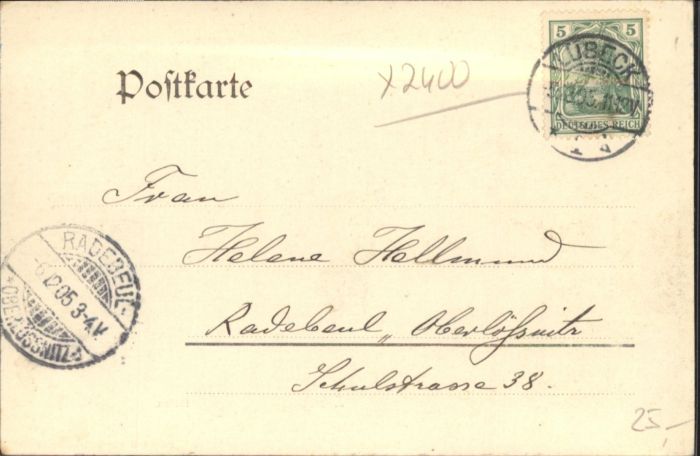 5 5
LÜBECK
DEUTSCHES REICH
Postkarte
x2400
Frau
Helene Hellmund
Radebeul „ Oberlößnitz
Schulstrasse 38.
RADEBEUL-
-6.12.05 3-4V
OBERLÖSSNITZ
25,-